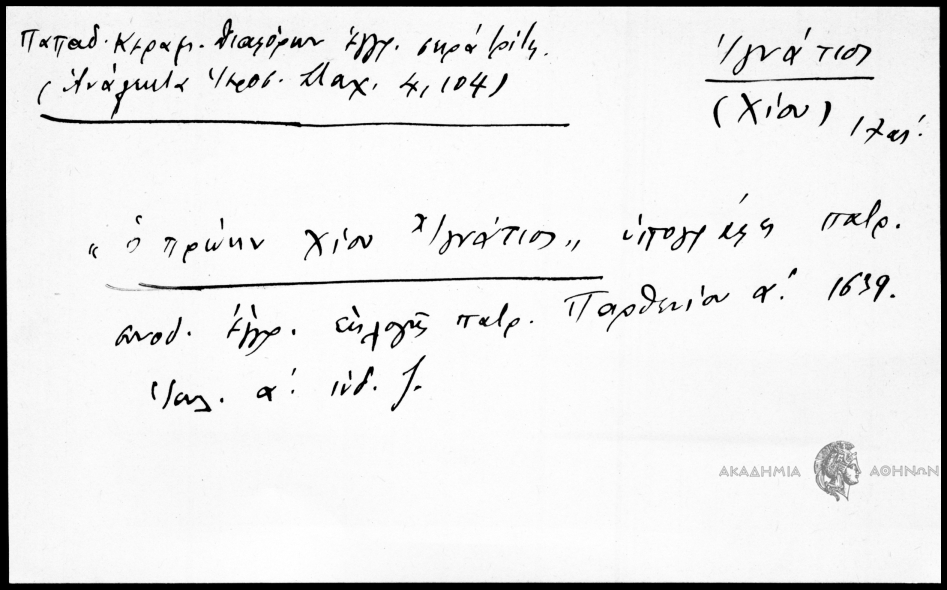 Παπαδ. Κεραμ. διαφόρων ἐγγρ. σειρὰ τρίτη.
(Ἀνάλεκτα Ἱεροσ. Σταχ. 4, 104)
Ἰγνάτιος
(Χίου)
„ ὁ πρώην Χίου Ἰγνάτιος „ ὑπογράφει πατρ.
συνοδ. ἔγγρ. ἐκλογῆς πατρ. Παρθενίου α΄. 1639.
Ἰουλ. α΄. ἰνδ. ζ.
ΑΚΑΔΗΜΙΑ ΑΘΗΝΩΝ